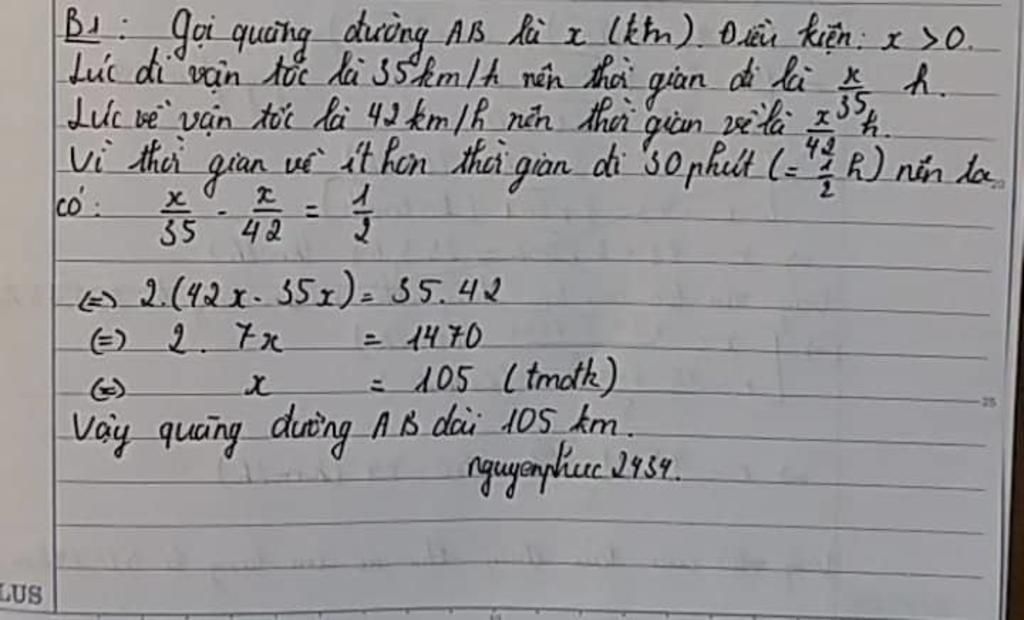 B1: Gọi quãng đường AB là x (km). Điều kiện: x > 0.
Lúc đi vận tốc là 35km/h nên thời gian đi là x/35 h.
Lúc về vận tốc là 42km/h nên thời gian về là x/42 h.
Vì thời gian về ít hơn thời gian đi 30 phút (= 1/2 h) nên ta
có: x/35 - x/42 = 1/2
(=) 2.(42x - 35x) = 35.42
(=) 2. 7x = 1470
(=) x = 105 (tmđk)
Vậy quãng đường AB dài 105 km.
nguyenphuc2434.
25
LUS